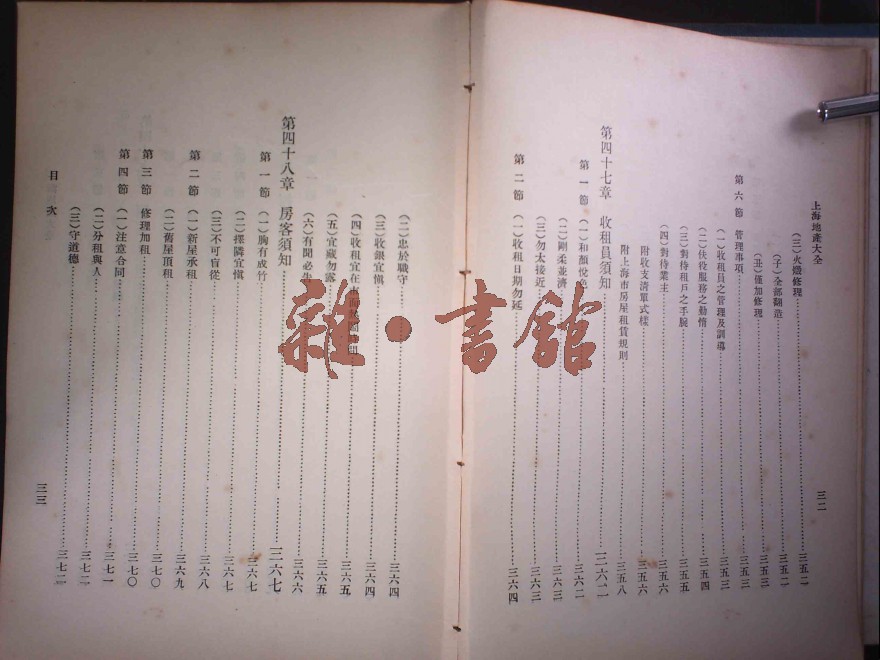 上海地產大全
三二
(三)火燬修理 三五二
(子)全部翻造 三五二
(丑)僅加修理 三五三
第六節 管理事項 三五三
(一)收租員之管理及訓導 三五三
(二)伕役服務之勤惰 三五四
(三)對待租戶之手腕 三五五
(四)對待業主 三五六
附收支清單式樣 三五六
附上海市房屋租賃規則 三五八
第四十七章 收租員須知 三六二
第一節 (一)和顏悅色 三六二
(二)剛柔並濟 三六三
(三)勿太接近 三六三
第二節 (一)收租日期勿延 三六四
(二)忠於職守 三六四
(三)收銀宜慎 三六四
(四)收租宜在 三六五
(五)宜藏勿露 三六五
(六)有聞必 三六六
第四十八章 房客須知 三六七
第一節 (一)胸有成竹 三六七
(二)擇隣宜愼 三六七
(三)不可盲從 三六八
第二節 (一)新屋承租 三六九
(二)舊屋頂租 三七〇
第三節 修理加租 三七〇
第四節 (一)注意合同 三七一
(二)分租與人 三七二
(三)守道德 三七二
目次
三三
雜·書館